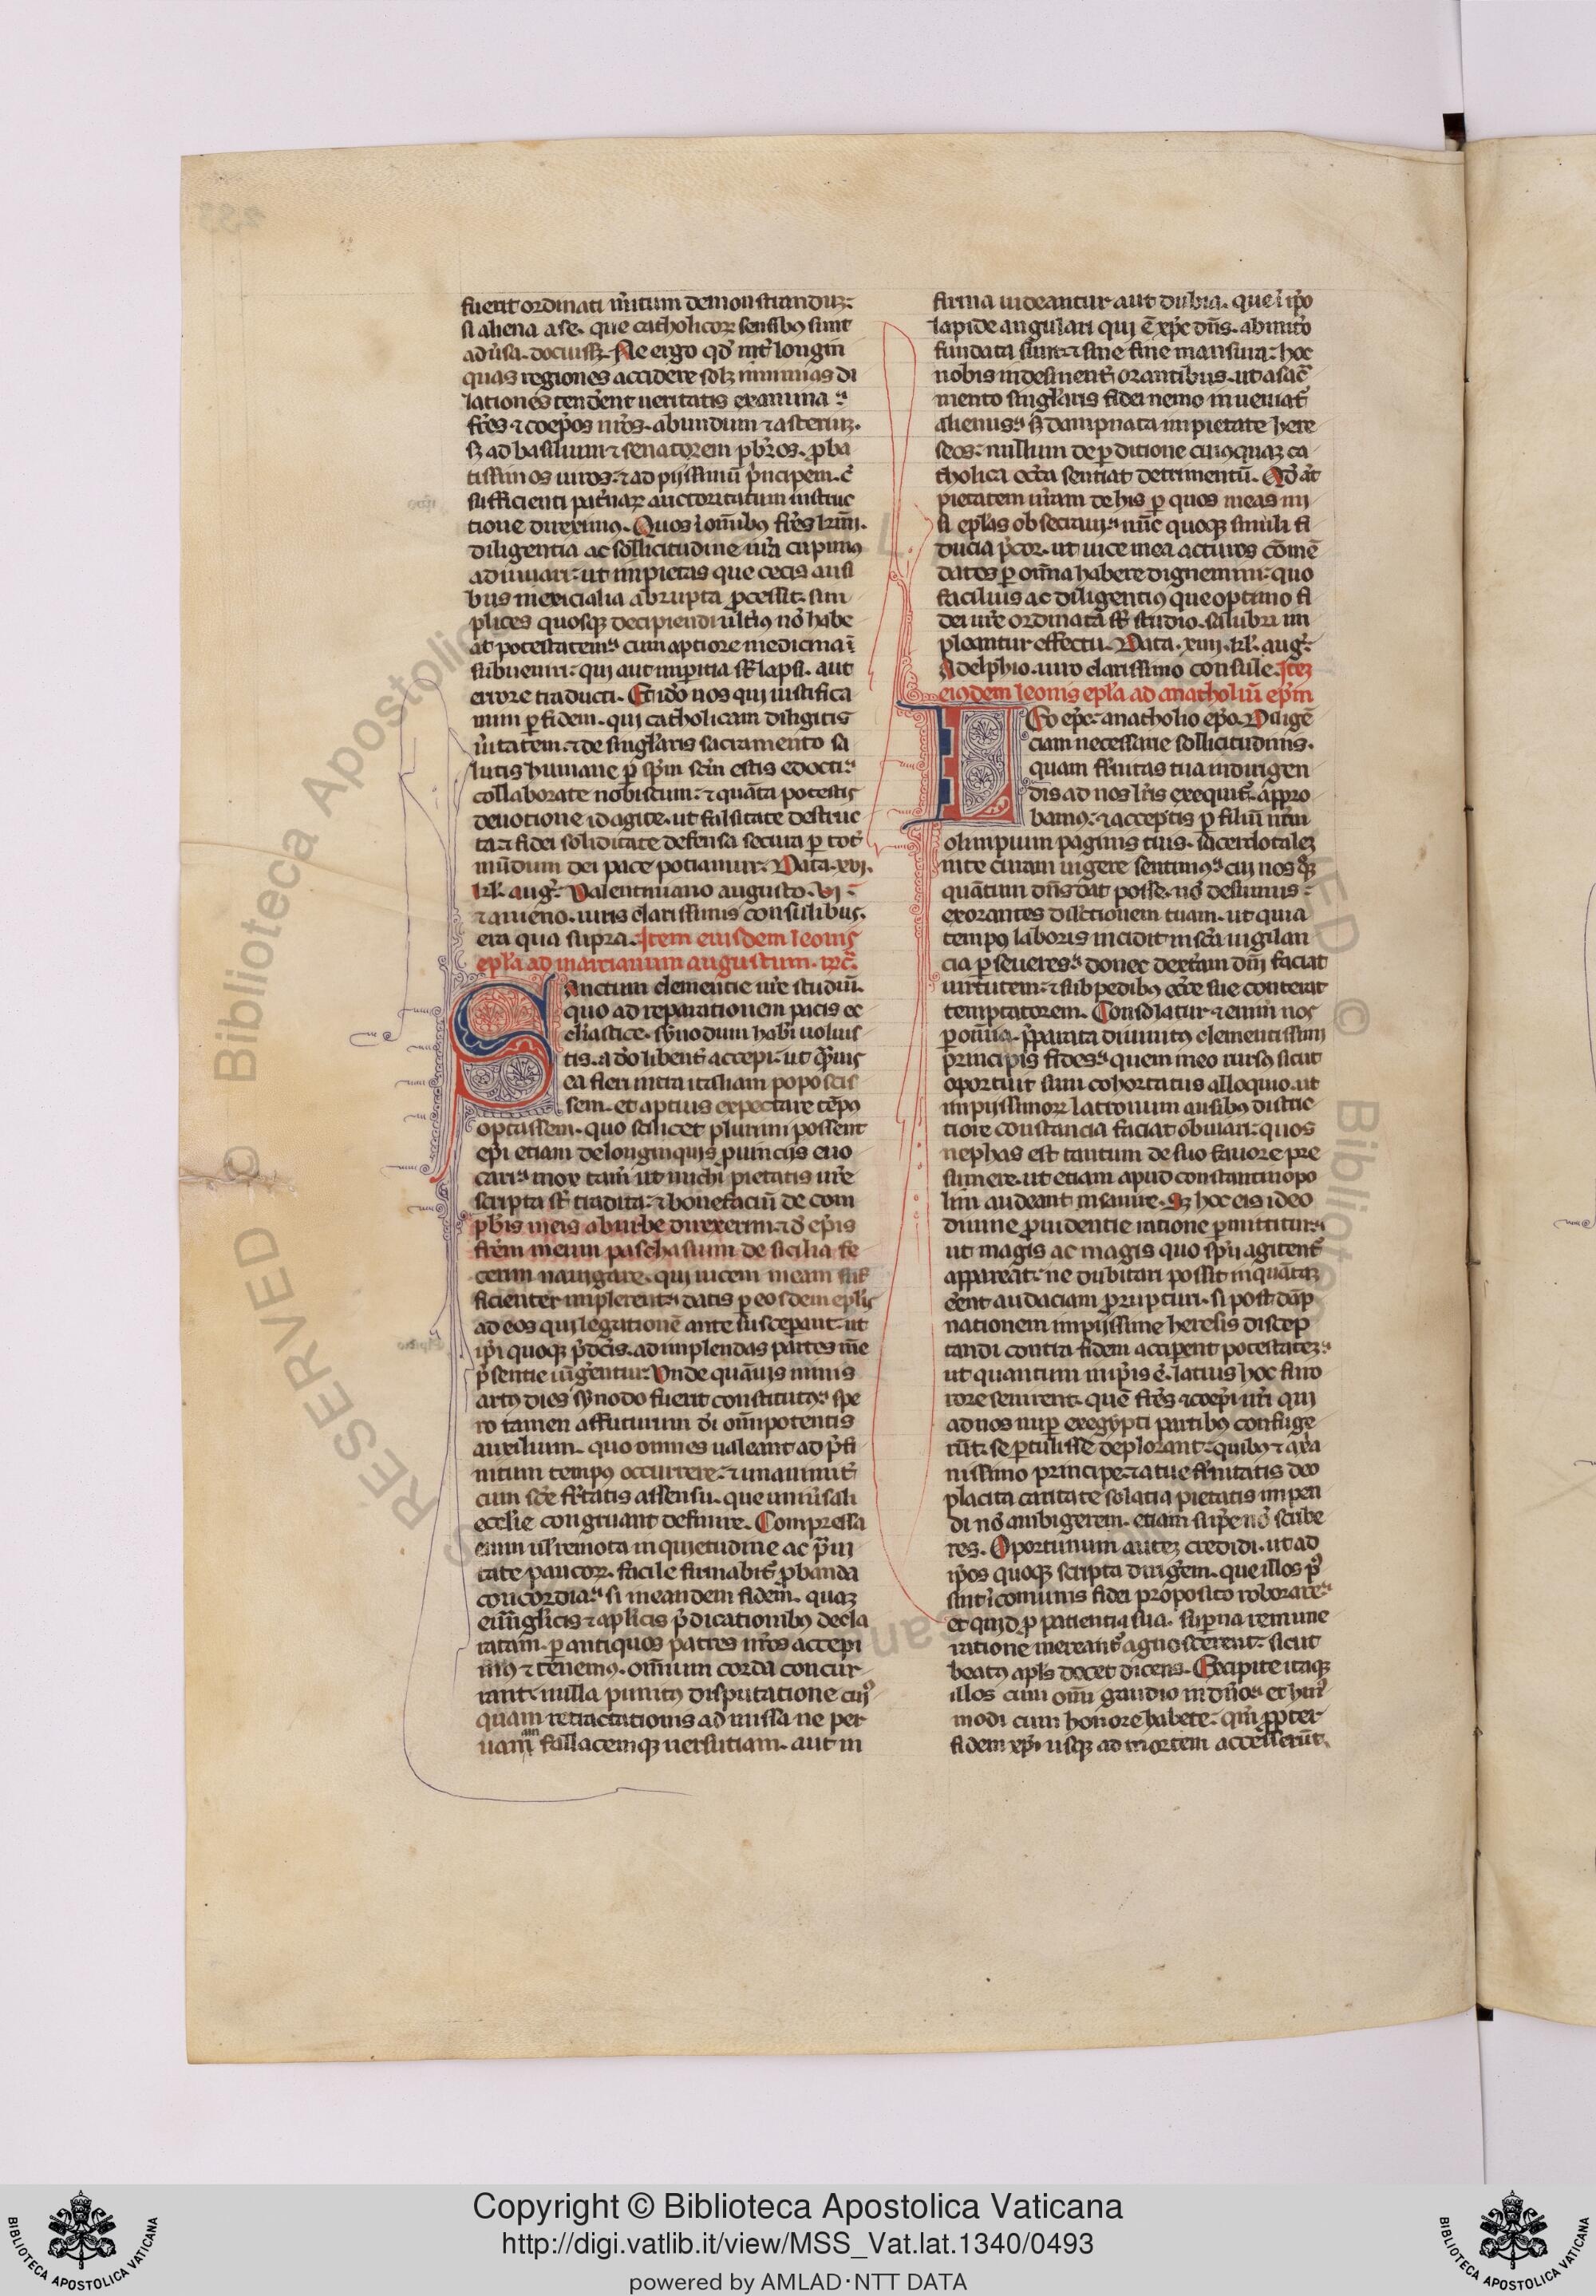 fuerit ordinati uirtutum demonstranduz.
si aliena a se. que catholicoꝝ sensibꝰ sunt
aduˀsa. docuissꝫ. Ne ergo qd̓ int̓ longin
quas regiones accidere solꝫ nimias di
lationes tenderent ueritatis examina.
fr̄es ⁊ coep̄os nr̄os. abundum ⁊ asteriuꝫ.
sꝫ ad basilium ⁊ senatorem pb̄ros. ꝓba
tissimos uiros. ⁊ ad pijssimū pͥncipem. c̄
sufficienti pat̓naꝝ auctoritatum instruc
tione direximꝰ. Quos ī om̄ibꝰ fr̄es kr̄mi.
diligentia ac sollicitudine ur̄a cupimꝰ
adiuuari. ut impietas que cecis ausi
bus in exicialia abrupta ꝓcessit. sim
plices quosqꝫ decipiendi ult̓iꝰ nō habe
at potestatem. cum aptiore medicina ī
subueniri. qui aut imꝑitia st̄ lapsi. aut
errore traducti. Et ido nos qui iustifica
mini ꝑ fidem. qui catholicam diligitis
ueritatem. ⁊ de singlaris sacramento sa
lutis humane ꝑ sp̄m sc̄m estis edocti.
collaborate nobiscum. ⁊ quāta potestis
deuotione id agite. ut falsitate destruc
ta. ⁊ fidei soliditate defensa secura ꝑ tot̓
mūdum dei pace potiamur. Data. xvi.
kl̄. aug̓. Valentiniano augusto. vi
⁊ auieno. uiris clarissimis consulibus.
era qua supra. Item eiusdem leonis
epl̄a ad marcianum augustum.
Sanctum clementie ur̄e studiū.
quo ad reparationem pacis ec
clesiastice. synodum habˀi uoluis
tis. a do libent̓ accepi. ut qͣmuis
ea fieri intra italiam poposcis
sem. et aptius expectare tēpꝰ
optassem. quo scilicet plurimi possent
epī etiam de longinquis ꝓuincijs euo
cari. mox tam̄ ut michi pietatis ur̄e
scripta st̄ tradita. ⁊ bonefaciū de com
pb̄ris meis ab urbe direxerim ⁊ d̓ epīs
fr̄em meum paschasium de sicilia fe
cerim nauigare. qui uicem meam suf
ficienter implerent. datis ꝑ eosdem epl̄is
ad eos qui legationē ante susceꝑant. ut
ip̄i quoqꝫ pͥdc̄is. ad implendas partes me
pͥsentie iūgerentur. Vnde quāuis nimis
artꝰ dies synodo fuerit constitutꝰ. spe
ro tamen affuturum dī om̄ipotentis
auxilium. quo omnes ualeant ad pͥfi
nitum tempꝰ occurrere. ⁊ unanimit̓
cum sc̄e fr̄tatis assensu. que uniuˀsali
ecclesie congruant definire. Compressa
enim uł remota inquietudine ac pͥui
tate paucoꝝ. facile firmabit̓ ꝓbanda
concordia. si in eandem fidem. quaꝫ
euūglicis ⁊ aplicis pͥdicationibꝰ decla
ratam. ꝑ antiquos patres nr̄os accepi
mꝰ ⁊ tenemꝰ. omnium corda concur
rant. nulla penitꝰ disputatione cuiꝰ
quam retractationis ad missa ne per
uam fallacemqꝫ uersutiam. aut in
firma uideantur aut dubia. que ī ip̄o
lapide angulari qui ē xp̄c dn̄s. ab initˀo
fundata sunt. ⁊ sine fine mansura. hoc
nobis indesinent̓ orantibus. ut a sacˀ
mento singlaris fidei nemo inueniat̓
alienus. sꝫ dampnata impietate here
seos. nullum de ꝑditione cuiusquaꝫ ca
tholica ecc̄a sentiat detrimentū. Ad at̄
pietatem ur̄am de his ꝑ quos meas mi
si epl̄as obsecraui. nūc quoqꝫ simili fi
ducia pͥcor. ut uice mea acturos cōmē
datos ꝑ om̄ia habere dignemini. quo
facilius ac diligentiꝰ que optimo fi
dei ur̄e ordinata st̄ studio. salubri im
pleantur effectu. Data. xiiij. kl̄. aug̓.
Adelphio. uiro clarissimo consule. Iteꝫ
eiusdem leonis epl̄a ad anatholiū ep̄m
Leo ep̄c. anatholio ep̄o. Diligē
ciam necessarie sollicitudinis.
quam fr̄nitas tua in dirigen
dis ad nos lr̄is exequit̓. appro
bamꝰ. ⁊ acceptis ꝑ filiū nr̄m
olimpium paginis tuis. sacerdotaleꝫ
in te curam uigere sentimꝰ. cui nos qͦqꝫ
quātum dn̄s dat posse. nō desumus.
exorantes dilectionem tuam. ut quia
tempꝰ laboris incidit in sc̄a uigilan
cia ꝑseueres. donec dextam dn̄i faciat
uirtutem. ⁊ sub pedibꝰ ecc̄e sue conterat
temptatorem. Consolatur ⁊ enim nos
ꝑ om̄ia. pͥparata diuinitꝰ clementissimi
principis fides. quem meo rursꝰ sicut
oportuit sum cohortatus alloquio. ut
impijssimoꝝ latronum ausibꝰ distric
tiore constancia faciat obuiari. quos
nephas est tantum de suo fauore pre
sumere. ut etiam apud constantinopo
lim audeant inseuire. Sꝫ hoc eis ideo
diuine ꝓuidentie ratione ꝑmittitur.
ut magis ac magis quo spū agitent̓
appareat. ne dubitari possit in quātaꝫ
eēnt audaciam ꝓrupturi. si post dāp
nationem impijssime heresis discep
tandi contra fidem acciꝑent potestateꝫ.
ut quantum impr̄is ē. latius hoc furo
rore seuirent. quē fr̄es ⁊ coep̄i nr̄i qui
ad nos nuꝑ ex egypti partibꝰ confuge
rūt. se ꝑtulisse deplorant. quibꝰ ⁊ a xr̄ia
nissimo principe. ⁊ a tue fr̄nitatis deo
placita caritate solatia pietatis impen
di nō ambigerem. etiam si suꝑ e nō scribe
res. Oportunum auteꝫ credidi. ut ad
ip̄os quoqꝫ scripta dirig̓em. que illos pꝰ
sint ī comunis fidei proposito roborare.
et quid ꝓ patientia sua. suꝑna remune
ratione mereant̓ agnoscerent. sicut
beatꝰ apl̄s docet dicens. Excipite itaqꝫ
illos cum om̄i gaudio in dn̄o. et huiꝰ
modi cum honore habete. qm̄ ꝓpter
fidem xp̄i usqꝫ ad mortem accesserūt.
Copyright © Biblioteca Apostolica Vaticana
http://digi.vatlib.it/view/MSS_Vat.lat.1340/0493
powered by AMLAD·NTT DATA